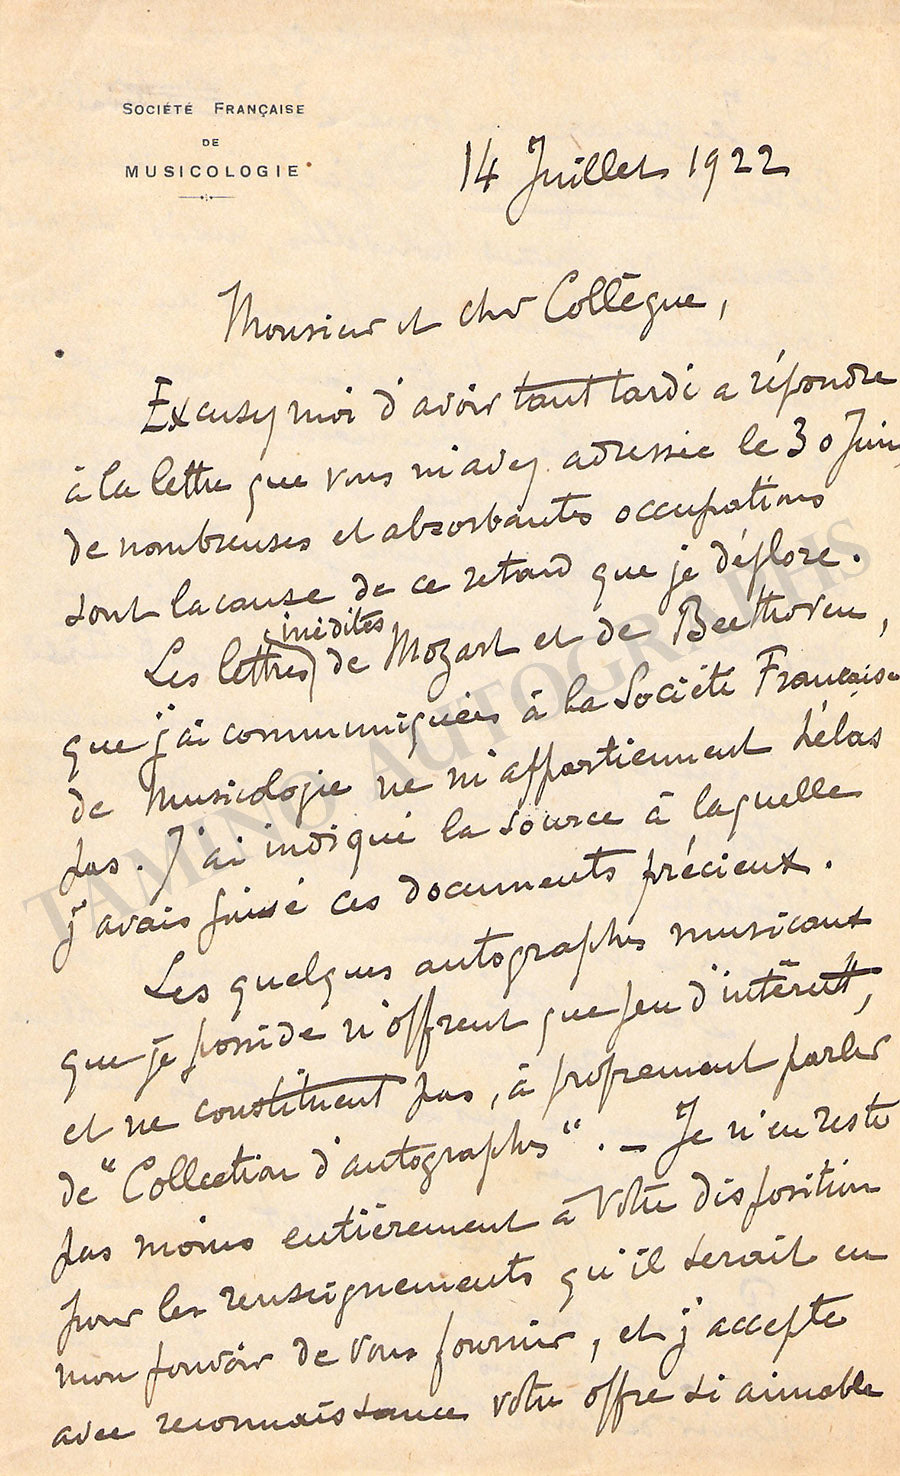 SOCIÉTÉ FRANÇAISE
DE
MUSICOLOGIE
14 Juillet 1922
Monsieur et cher Collègue,
Excusez moi d'avoir tant tardé a répondre
à la lettre que vous m'avez adressée le 30 Juin,
de nombreuses et absorbantes occupations
sont la cause de ce retard que je déplore.
inédites
Les lettres de Mozart et de Beethoven,
que j'ai communiquées à la Société Française
de Musicologie ne m'appartiennent hélas
pas. J'ai indiqué la source à laquelle
j'avais puisé ces documents précieux.
Les quelques autographes musicaux
que je possède n'offrent que peu d'intérêt,
et ne constituent pas, à proprement parler
de "Collection d'autographes". — Je n'en reste
pas moins entièrement à votre disposition
pour les renseignements qu'il serait en
mon pouvoir de vous fournir, et j'accepte
avec reconnaissance votre offre si aimable
TAMINO AUTOGRAPHS